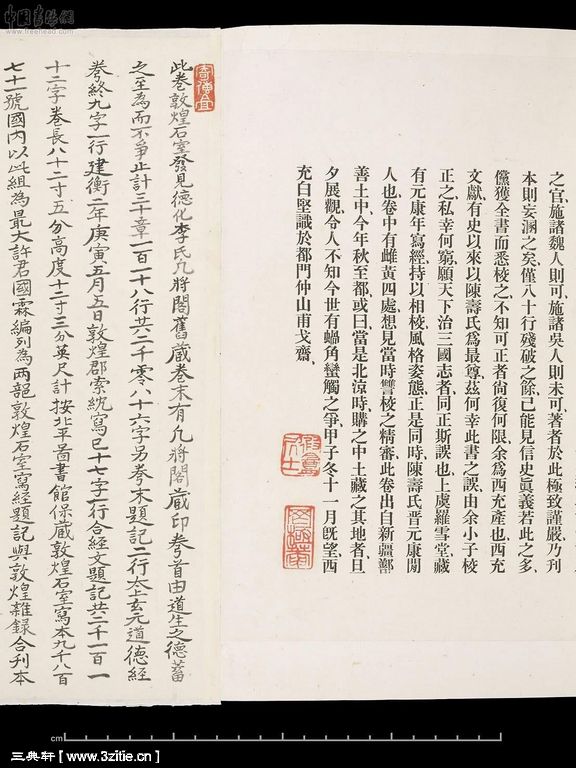 之官、施諸魏人則可、施諸吳人則未可、著者於此極致謹嚴、乃刊
本則妄溷之矣、僅八十行殘破之餘、已能見信史眞義若此之多、
儻獲全書而悉校之、不知可正者尙復何限、余爲西充產也、西充
文獻、有史以來以陳壽氏爲最尊、茲何幸此書之誤由余小子校
正之、私幸何窮、願天下治三國志者、同正斯誤也、上虞羅雪堂藏
有元康年寫經、持以相校、風格姿態、正是同時、陳壽氏晋元康閒
人也、卷中有雌黃四處、想見當時讐校之精審、此卷出自新疆鄯
善土中、今年秋至都、或曰、當是北涼時購之中土藏之其地者、旦
夕展觀、令人不知今世有蝸角蠻觸之爭、甲子冬十一月旣望、西
充白堅識於都門仲山甫戈齋、
此卷敦煌石室發見德化李氏凡將閣舊藏卷末有凡將閣藏印卷首由道生之德蓄
之至為而不爭止計三十章一百一十八行共二千零八十六字另卷末題記二行太上玄元道德經
卷終九字一行建衡二年庚寅五月五日敦煌郡索紞寫已十七字一行合經文題記共二千一百一
十二字卷長八十二寸五分高度十二寸三分英尺計按北平啚書館保藏敦煌石室寫本九千八百
七十一號國內以此組為最大許君國霖編列為兩部敦煌石室寫經題記與敦煌雜錄合刊本
中国書法網
www.freehead.com
cm
三典轩【www.3zitie.cn】